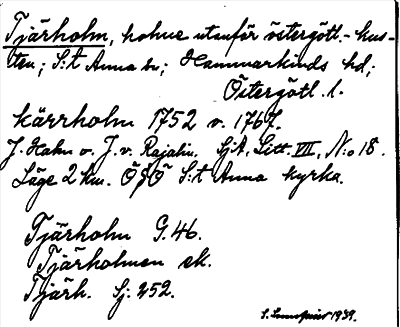 Tjärholm, holme utanför östergötl.-kus-
ten; S:t Anna sn; Hammarkinds hd;
Östergötl. l.
Kärrholm 1752 v. 1767.
J. Hahn o. J. v. Rajalin. SjA, Litt. VII, N:o 18.
Läge 2 km. ÖSÖ S:t Anna kyrka.
Tjärholm G.46.
Tjärholmen ek.
Tjärh. Sj. 252.
1939.